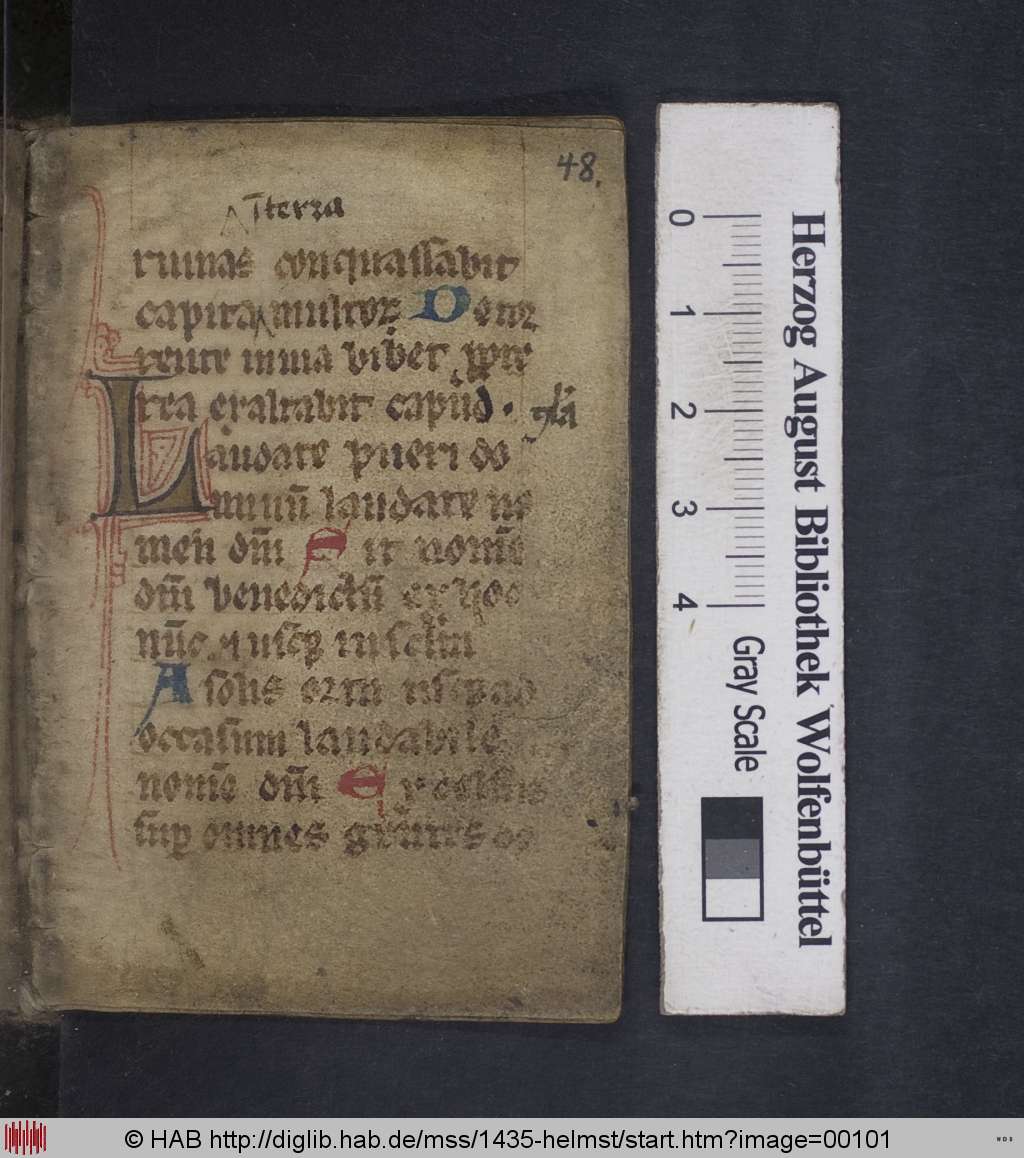 48.
⁁ ī terra
ruinas conquassabit
capita⁁multoꝝ De toꝛ
rente in uia bibet ꝓpte
rea exaltabit capud . gl̄a
Laudate pueri do
minū laudate no
men dn̄i Sit nom̄e
dn̄i benedictū ex hoc
nūc ⁊ usqꝫ in sc̄lm
A solis ortu usqꝫ ad
occasum laudabile
nom̄e dn̄i Excelsus
suꝑ omnes gentes
0
1
2
3
4
Gray Scale
Herzog August Bibliothek Wolfenbüttel
© HAB http://diglib.hab.de/mss/1435-helmst/start.htm?image=00101